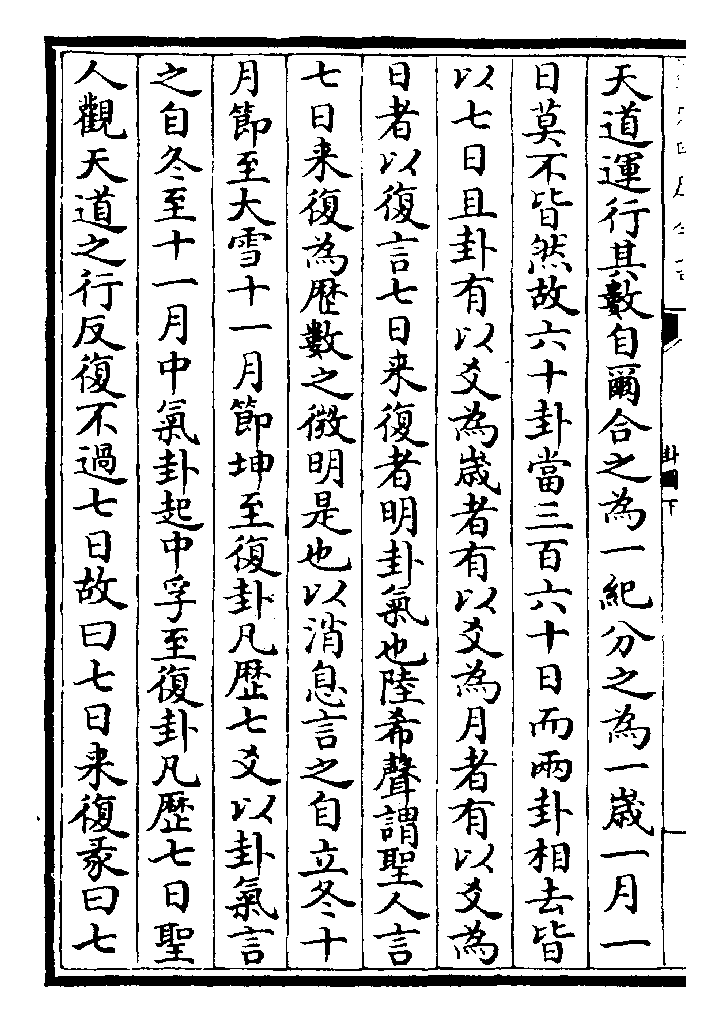 天道運行其數自爾合之為一紀分之為一歲一月一
日莫不皆然故六十卦當三百六十日而兩卦相去皆
以七日且卦有以爻為歲者有以爻為月者有以爻為
日者以復言七日来復者明卦氣也陸希聲謂聖人言
七日来復為歷數之微明是也以消息言之自立冬十
月節至大雪十一月節坤至復卦凡歷七爻以卦氣言
之自冬至十一月中氣卦起中孚至復卦凡歷七日聖
人觀天道之行反復不過七日故曰七日来復彖曰七
卦圖下